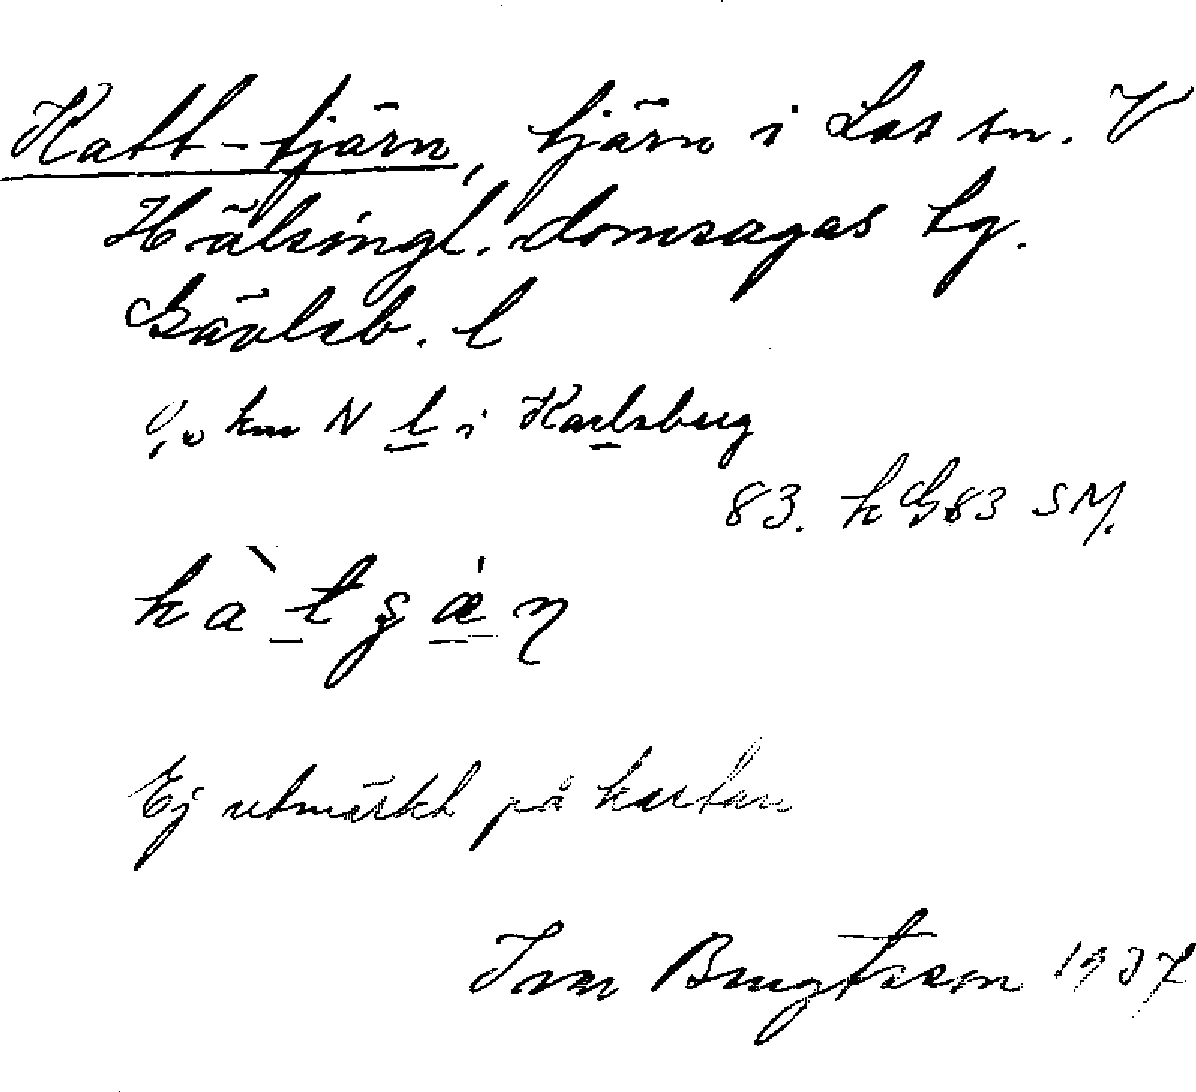 Katt-tjärn, tjärn i Los sn. V
Hälsingl. domsagas tg.
Gävleb. l
km N l i Karlsberg
83. h G83 SM.
Ej utmärkt på kartan
Ivar Bengtsson 1937